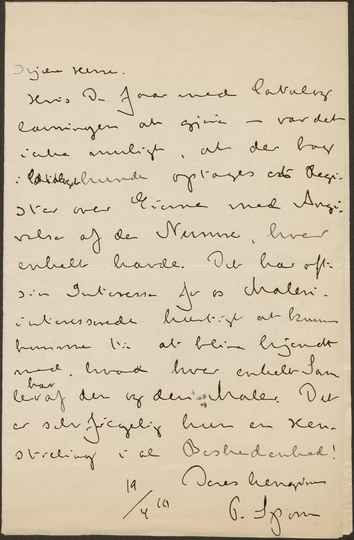 Kjære Herre.
Hvis De faar med Katalog
lavningen at gjøre – var det
ikke muligt, at der bag
i kunde optages et Regi-
ster over Eierne med Angi-
velse af de Numre, hver
enkelt havde. Det har oft
sin Interesse for os Maleri-
interesserede hurtigt at kunne
komme til at blive kjendt
med, hvad hver enkelt Sam
ler har af den og den Maler. Det
er selvfølgelig kun en Hen-
stilling i al Beskedenhed!
Deres hengivne
19/4 10